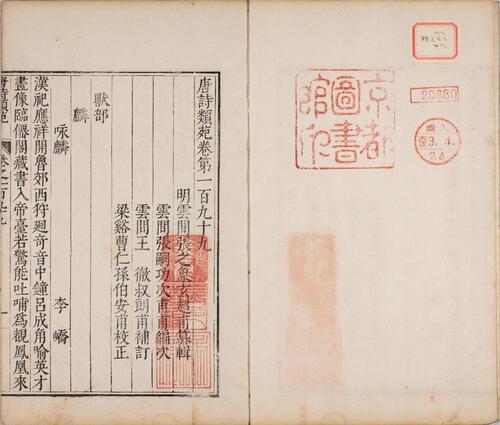 唐詩類苑卷第一百九十九
明雲間張之象玄超甫纂輯
雲間張嗣功次甫編次
雲間王徹叔朗甫補訂
梁谿曹仁孫伯安甫校正
獸部
麟
咏麟
李嶠
漢祀應祥開魯郊西狩迴奇音中鐘呂成角喻英才
畫像臨僊閣藏書入帝臺若驚能吐哺為覿鳳凰來
唐詩類苑
卷之一百九十九
一
京都
圖書
館印
20880
3.4.
24